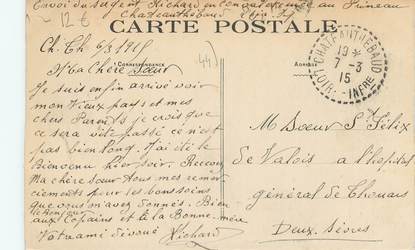 Envoi du sergent Richard en convalescence au Pineau
Chateauthébaud Loire Inf
12€
CARTE POSTALE
CORRESPONDANCE
ADRESSE
44
CHATEAUTHEBAUD
LOIRE-INFRE
19*
7-3
15
Ch. Th 6/3 1915
Ma Chère Sœur
Je suis enfin arrivé voir
mon Vieux pays et mes
chers Parents je crois que
ce sera vite passé ce n'est
pas bien long. J'ai été le
Bienvenu hier soir. Recevez
Ma chère sœur tous mes remer
ciements pour les bons soins
que vous m'avez donnés. Bien
le Bonjour
aux Copains et à la Bonne mère
Votre ami dévoué Richard
M Soeur St Félix
de Valois a l'hopital
général de Thouars
Deux Sèvres